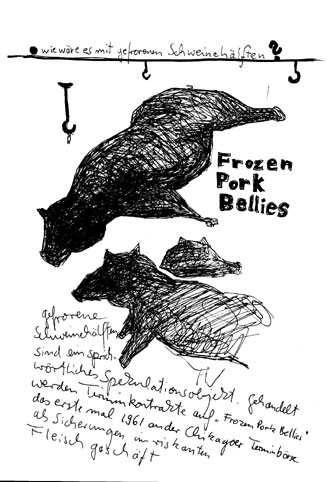 wie wäre es mit gefrorenen Schweinehälften?
Frozen
Pork
Bellies
gefrorene
Schweinehälften
sind ein sprich-
wörtliches Spekulationsobjekt. Gehandelt
werden Terminkontrakte auf „Frozen Pork Bellies"
das erste mal 1961 an der Chikagoer Terminbörse
als Sicherungen im riskanten
Fleischgeschäft